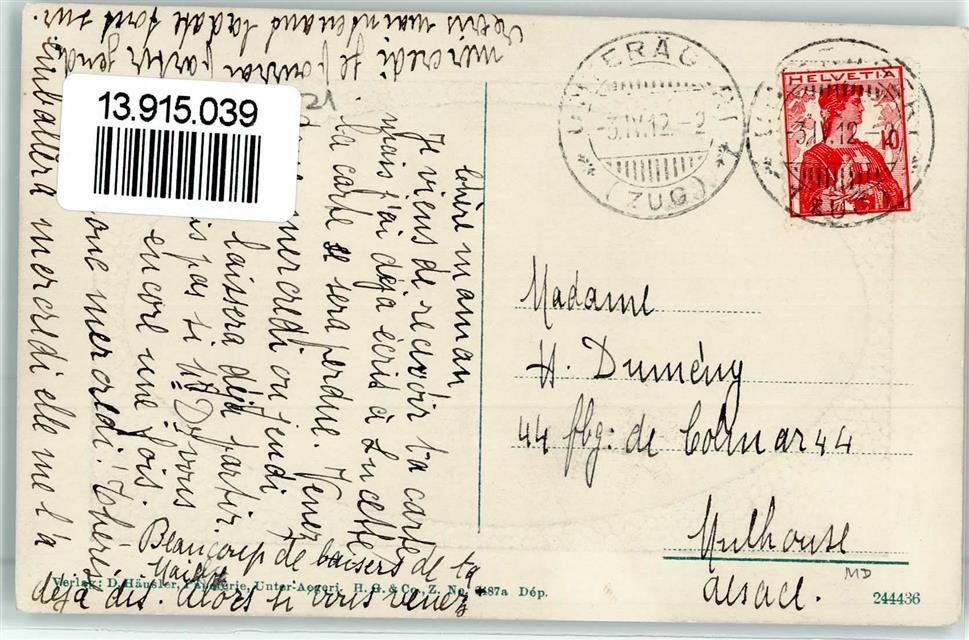 13.915.039
Chère maman
Je viens de recevoir ta carte
mais j'ai déjà écrit à Lucette
la carte se sera perdue. Venez
mercredi ou jendi
laissera déjà partir
is pas si Mr D. vous
encore une fois.
mercredi!
emballera mercredi elle me l'a
déjà dis. Alors si vous venez
mercredi je pourrai partir jendi
maintenant
Beaucoup de baisers de ta
UNTERÄGERI
3.IV.12.-2
(ZUG)
HELVETIA
10
UNTERÄGERI
3.IV.12
ZUG
Madame
H. Dumény
44 fbg: de Colmar 44
Mulhouse
Alsace.
MD
Verlag: D. Hänsler, Papeterie, Unter-Aegeri. H. G. & Co., Z. No. 6487a Dép.
244436